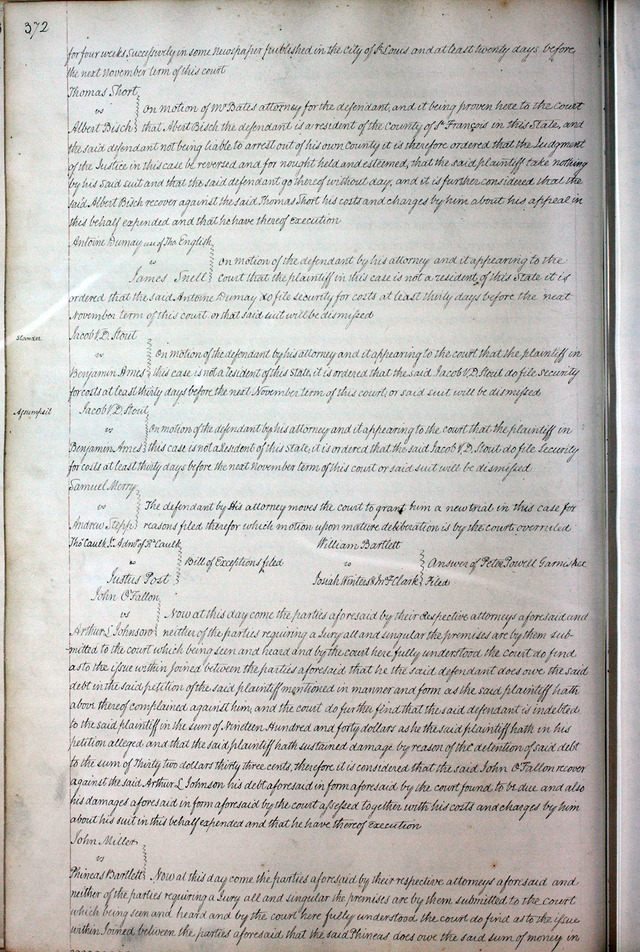 372
for four weeks, Successively in some Newspaper published in the city of St Louis and at least twenty days before
the next November term of this court
Thomas Short
vs
Albert Bisch
On motion of Mr Bates attorney for the defendant, and it being proven here to the Court
that Abert Bisch the defendant is a resident of the County of St François in this State, and
the said defendant not being liable to arrest out of his own County it is therefore ordered that the Judgment
of the Justice in this case be reversed and for nought held and esteemed, that the said plaintiff take nothing
by his said suit and that the said defendant go thereof without day, and it is further considered that the
said Albert Bisch recover against the said Thomas Short his costs and charges by him about his appeal in
this behalf expended and that he have thereof execution
Antoine Dumay use of Tho English
vs
James Snell
On motion of the defendant by his attorney and it appearing to the
court that the plaintiff in this case is not a resident of this State it is
ordered that the said Antoine Dumay do file security for costs at least thirty days before the next
November term of this court or that said suit will be dismissed
Slander
Jacob V.D. Stout
vs
Benjamin Ames
On motion of the defendant by his attorney and it appearing to the court that the plaintiff in
this case is not a Resident of this State, it is ordered that the said Jacob V.D. Stout do file Security
for costs at least thirty days before the next November term of this court, or said suit will be dismissed
Assumpsit
Jacob V.D. Stout
vs
Benjamin Ames
On motion of the defendant by his attorney and it appearing to the court that the plaintiff in
this case is not a Resident of this State, it is ordered that the said Jacob V.D. Stout do file Security
for costs at least thirty days before the next November term of this court or said suit will be dismissed
Samuel Merry
vs
Andrew Stepp
The defendant by His attorney moves the court to grant him a new trial in this case for
reasons filed therefor which motion upon mature deliberation is by the court overruled
Tho Caulk Jr Admr of Rd Caulk
vs
Justus Post
Bill of Exceptions filed
William Bartlett
vs
Josiah Winters & Mr F Clark
Answer of Peter Powell Garnishee
Filed
John O'Fallon
vs
Arthur L Johnson
Now at this day come the parties aforesaid by their respective attorneys aforesaid and
neither of the parties requiring a Jury all and singular the premises are by them sub-
mitted to the court which being seen and heard and by the court here fully understood the court do find
as to the issue within joined between the parties aforesaid that he the said defendant does owe the said
debt in the said petition of the said plaintiff mentioned in manner and form as the said plaintiff hath
above thereof complained against him, and the court do further find that the said defendant is indebted
to the said plaintiff in the sum of Nineteen Hundred and forty dollars as he the said plaintiff hath in his
petition alleged and that the said plaintiff hath sustained damage by reason of the detention of said debt
to the sum of Thirty two dollars thirty three cents, therefore it is considered that the said John O'Fallon recover
against the said Arthur L Johnson his debt aforesaid in form aforesaid by the court found to be due and also
his damages aforesaid in form aforesaid by the court assessed together with his costs and charges by him
about his suit in this behalf expended and that he have thereof execution
John Miller
vs
Phineas Bartlett
Now at this day come the parties aforesaid by their respective attorneys aforesaid and
neither of the parties requiring a Jury all and singular the premises are by them submitted to the court
which being seen and heard and by the court here fully understood the court do find as to the issue
within Joined between the parties aforesaid that the said Phineas does owe the said sum of money in